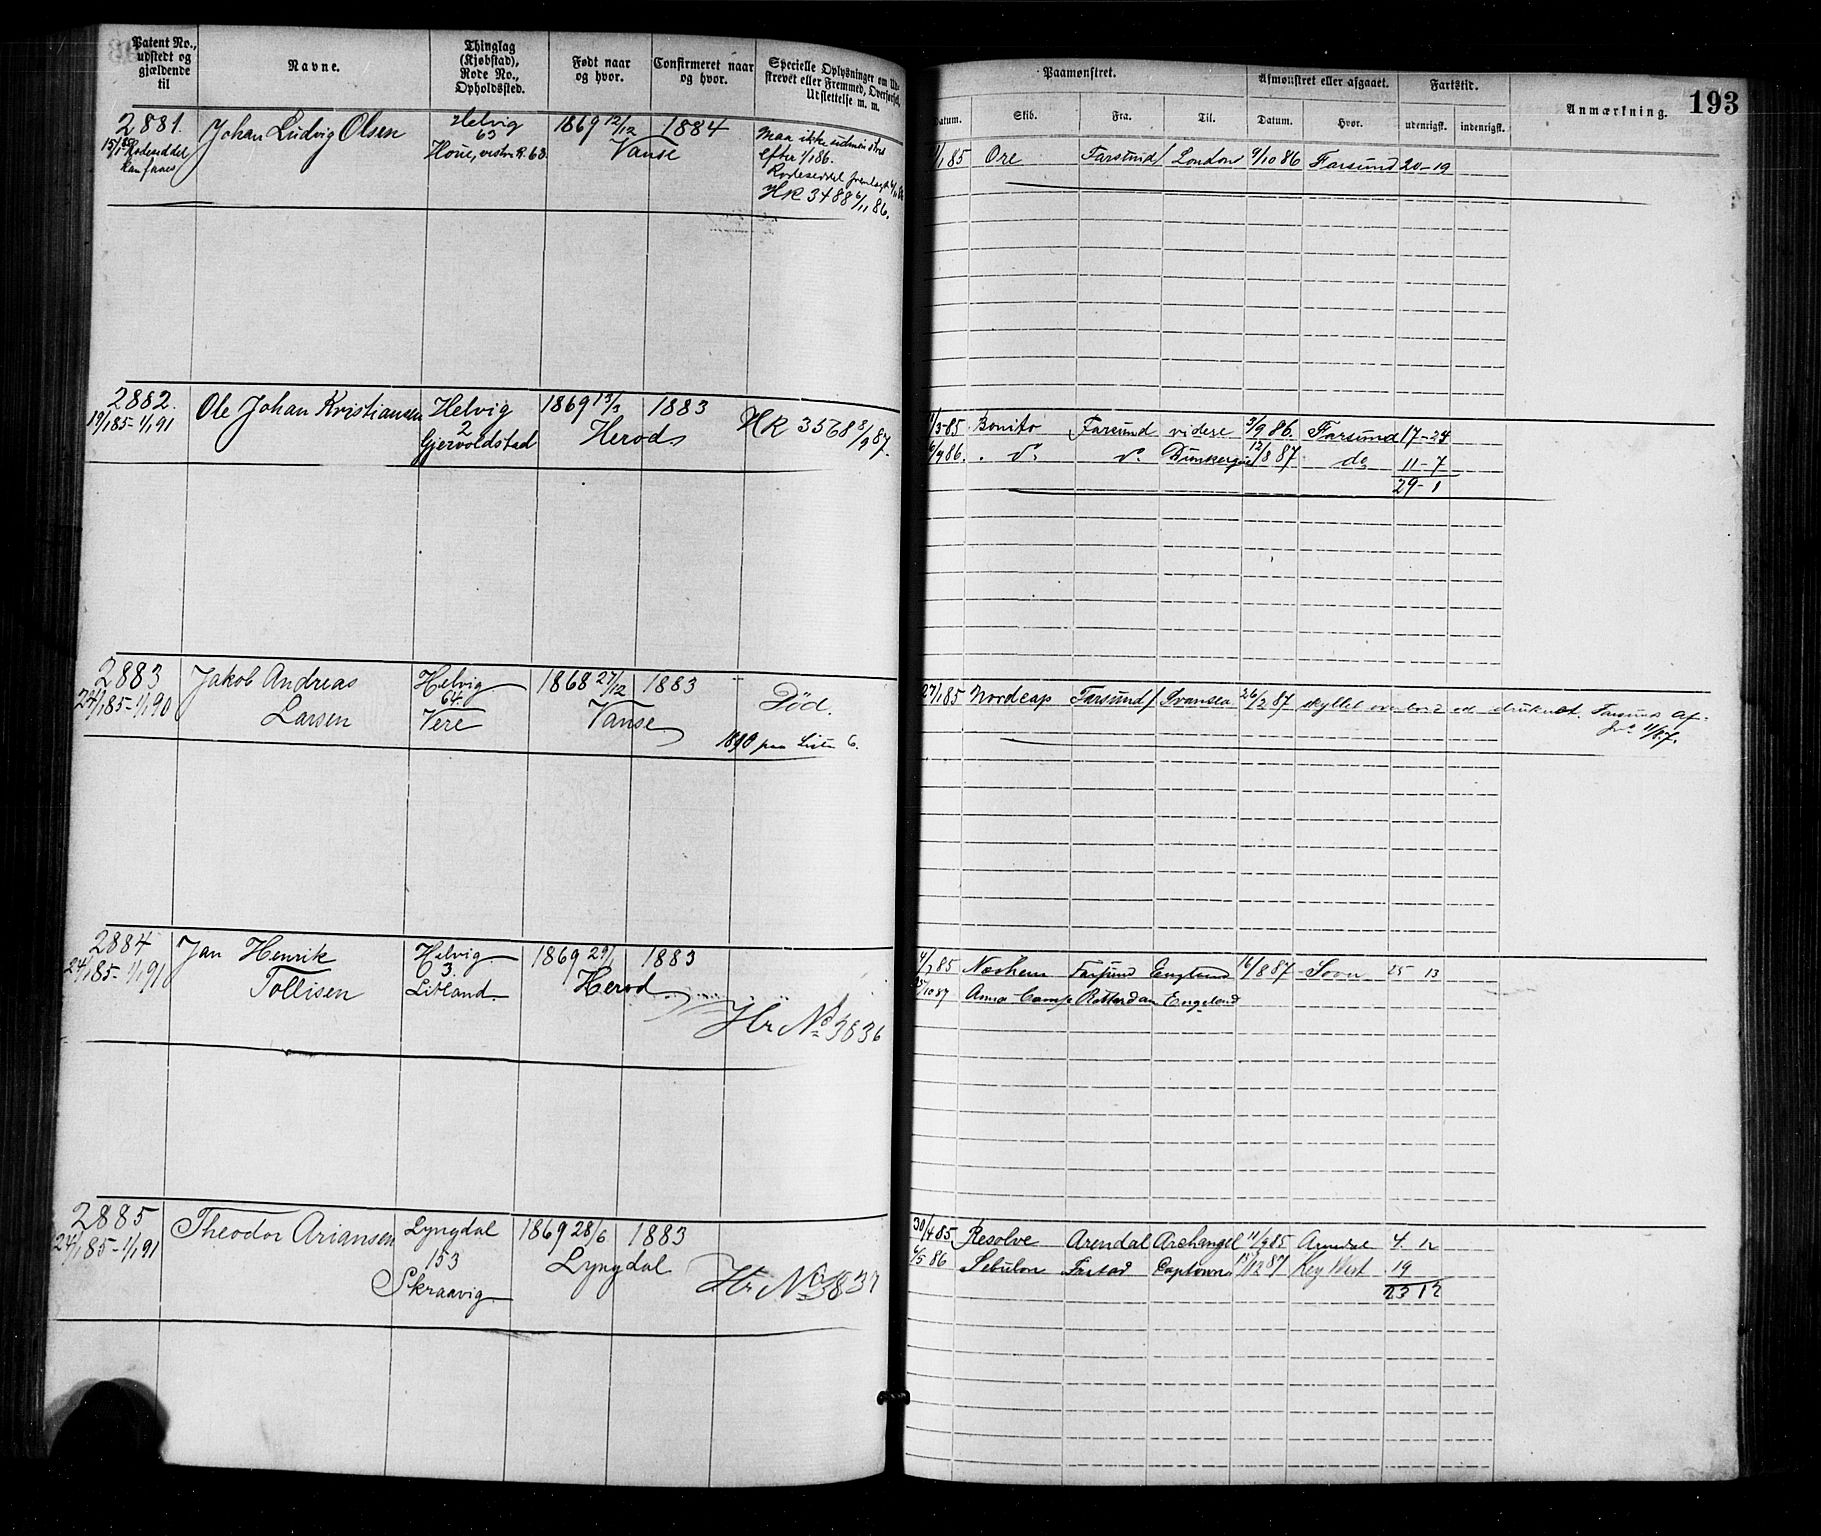 Patent No., udstedt og gjældende til
Navne.
Thinglag (Kjøbstad), Rode No., Opholdssted.
Født naar og hvor.
Confirmeret naar og hvor.
Specielle Oplysninger om Ud-
strevet eller Fremmed, Overførsel,
Udslettelse m. m.
Paamønstret.
Afmønstret eller afgaaet.
Fartstid.
Anmærkning.
193
Datum. Skib. Fra. Til. Datum. Hvor. udenrigsk. indenrigsk.
2881. Johan Ludvig Olsen Helvig 1869 12/12 1884 maa ikke udmønstres
63 Vanse efter 1/1 86.
Houe, vestre R. 63
HR 3488 6/11 86.
1/1 85 Ore Farsund London 9/10 86 Farsund 20-19
2882. Ole Johan Kristiansen Helvig 1869 13/3 1883 HR 3568 8/9 87.
19/1 85-1/1 91 2 Herod
Gjervoldstad
85 Bonito Farsund videre 3/9 86. Farsund 17-24
9 86. do do Dunkerque 12/8 87 do 11-7
29-1
2883 Jakob Andreas Helvig 1868 27/12 1883 Død.
24/1 85-1/1 90 Larsen 64 Vanse
Vere
1890 paa Liste 6.
27/1 85 Nordcap Farsund Svansea 26/2 87 skyllet overbord og druknet. Farsunds Af-
2884 Jan Henrik Helvig 1869 29/1 1883
24/1 85-1/1 91 Tollisen 3. Herod
Litland
Hr No 3836
85 Farsund England 16/8 87 25 13
10 87 Anna Camp Rotterdam Engeland
2885 Theodor Ariansen Lyngdal 1869 28/6 1883
24/1 85-1/1 91 153 Lyngdal
Skraavig Hr No 3837
30/4 85 Resolve Arendal Archangel 11/9 85 Arendal 4. 12
6/5 86 Sebulon Captown 12 87 Key West 19
23 12